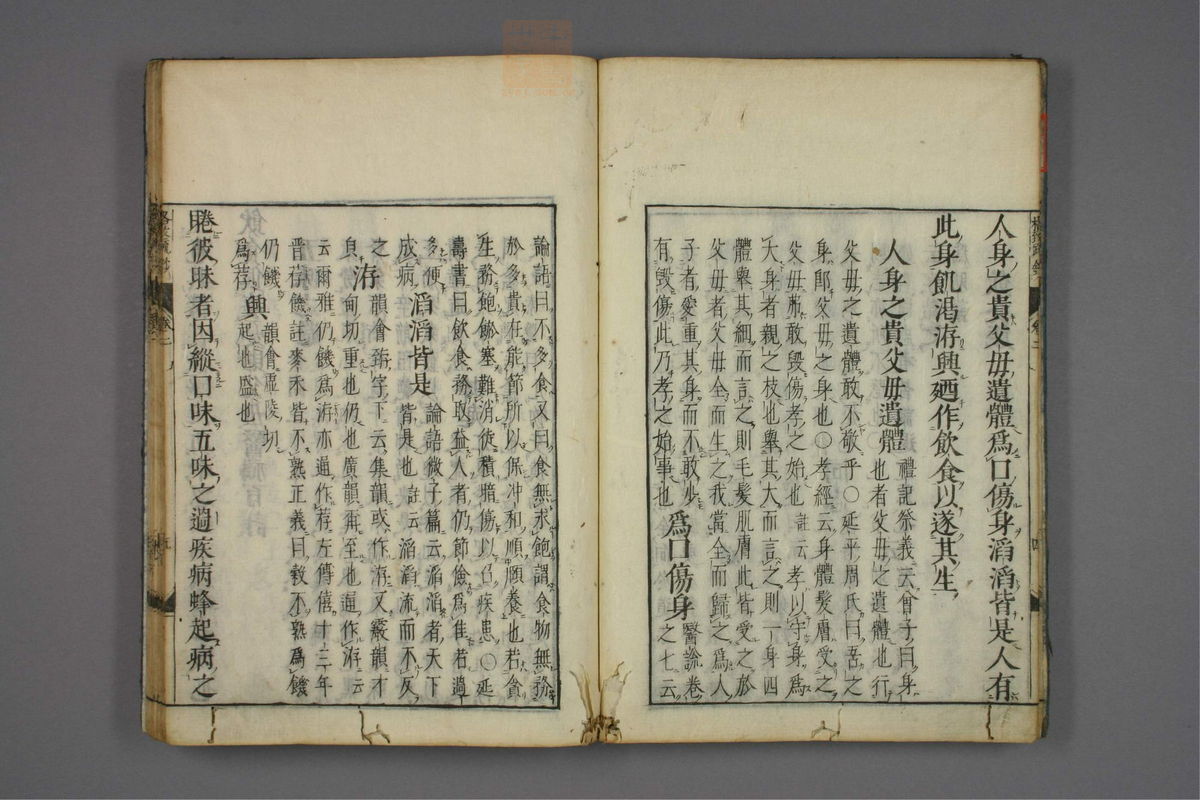 人身之貴父毋遺體爲口傷身滔滔皆是人有
此身飢渴洊興廼作飲食以遂其生
人身之貴父毋遺體 禮記祭義云曾子曰身也者父毋之遺體也行
父毋之遺體敢不敬乎○延平周氏曰吾之
身即父毋之身也○孝經云身體髮膚受之
父毋不敢毀傷孝之始也註云孝以守身爲
大身者親之枝也舉其大而言之則一身四
體舉其細而言之則毛髮肌膚此皆受之於
父毋者父毋全而生之我當全而歸之爲人
子者愛重其身而不敢少
有毀傷此乃孝之始事也 爲口傷身 醫説卷之七云
論語曰不多食又曰食無求飽謂食物無務
於多貴在能節所以保冲和順頤養也若貪
生務飽飫塞難消徒積暗傷以召疾患○延
壽書曰飲食務取益人者仍節儉爲佳若過
多便成病 滔滔皆是 論語微子篇云滔滔者天下皆是也註云滔滔流而不反
之 洊 韻會臻字下云集韻或作洊又霰韻才
良甸切重也仍也廣韻再至也通作洊云
云爾雅仍饑爲洊亦通作荐左傳僖十三年
晋荐饑註麥禾皆不熟正義曰穀不熟爲饑
仍饑爲荐 興 韻會虛陵切起也盛也
睠彼昧者因縱口味五味之過疾病蜂起病之